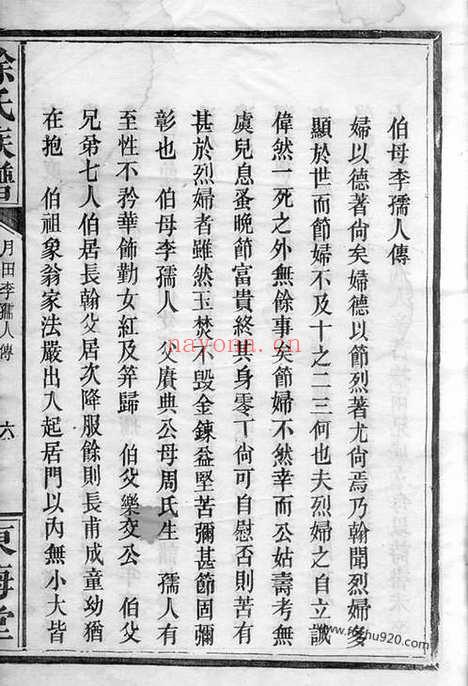 伯母李孺人傳
婦以德著尙矣婦德以節烈著尤尙焉乃翰聞烈婦多
顯於世而節婦不及十之二三何也夫烈婦之自立誠
偉然一死之外無餘事矣節婦不然幸而公姑壽考無
虞兒息蚤晚節富貴終其身零丁尙可自慰否則苦有
甚於烈婦者雖然玉焚不毀金鍊益堅苦彌甚節固彌
彰也　伯母李孺人　父賡典公母周氏生　孺人有
至性不矜華飾勤女紅及笄歸　伯父樂交公　伯父
兄弟七人伯居長翰父居次降服餘則長甫成童幼猶
在抱　伯祖象翁家法嚴出入起居門以內無小大皆
徐氏族譜
月田李孺人傳
六
東海堂
nayona.cn
www.foshu920.com